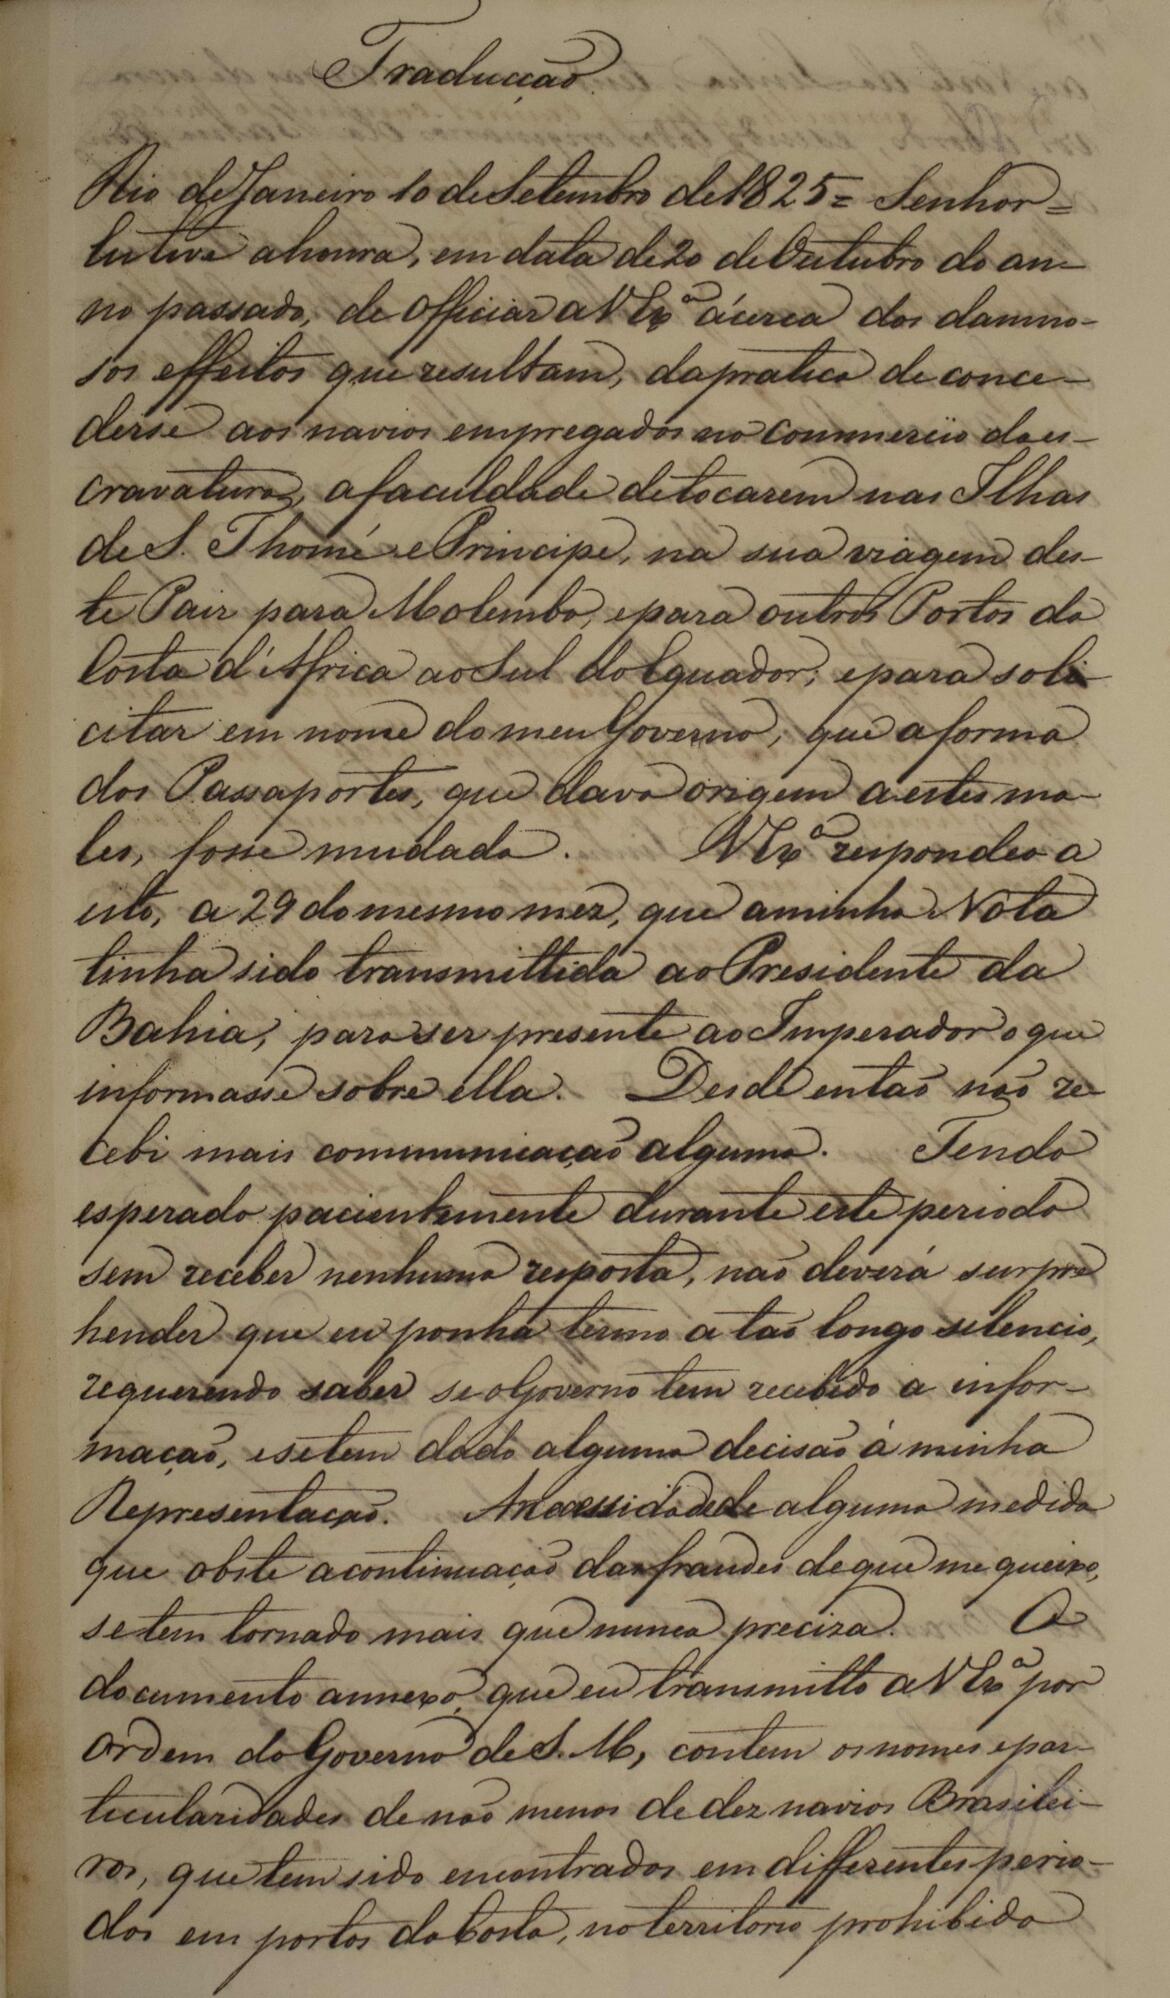 Traducção
Rio de Janeiro 10 de Setembro de 1825 = Senhor =
Eu tive a honra, em data de 20 de Outubro do an-
no passado, de officiar a V Exª ácerca dos damno-
sos effeitos que resultam, da pratica de conce-
derse aos navios empregados no Commercio da es-
cravatura, a faculdade de tocarem nas Ilhas
de S. Thomé e Principe, na sua viagem des-
te Paiz para Molembo, e para outros Portos da
Costa d'Africa ao Sul do Equador; e para soli-
citar em nome do meu Governo, que a forma
dos Passaportes, que dava origem a estes ma-
les, fosse mudada. V Exª respondeo a
isto, a 29 do mesmo mez, que a minha Nota
tinha sido transmittida ao Presidente da
Bahia, para ser presente ao Imperador o que
informasse sobre ella. Desde então não re-
cebi mais communicação alguma. Tendo
esperado pacientemente durante este periodo
sem receber nenhuma resposta, não deverá surpre
hender que eu ponha termo a tão longo silencio,
requerendo saber se o Governo tem recebido a infor-
mação, e se tem dado alguma decisão á minha
Representação. A necessidade de alguma medida
que obste a continuação das fraudes de que me queixo,
se tem tornado mais que nunca preciza. O
documento annexo, que eu transmitto a V Exª por
ordem do Governo de S. M., contem os nomes e par-
ticularidades de não menos de dez navios Brasilei-
ros, que tem sido encontrados em differentes perio-
dos em portos da Costa, no territorio prohibido